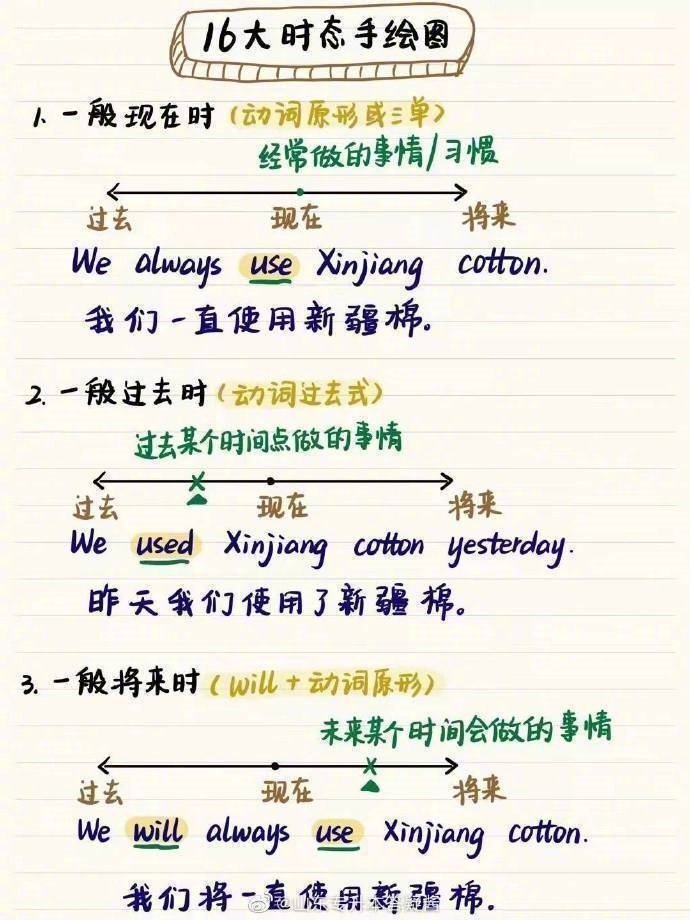 16大时态手绘图
1. 一般现在时（动词原形或三单）
经常做的事情/习惯
过去 现在 将来
We always use Xinjiang cotton.
我们一直使用新疆棉。
2. 一般过去时（动词过去式）
过去某个时间点做的事情
过去 现在 将来
We used Xinjiang cotton yesterday.
昨天我们使用了新疆棉。
3. 一般将来时（will + 动词原形）
未来某个时间会做的事情
过去 现在 将来
We will always use Xinjiang cotton.
我们将一直使用新疆棉。